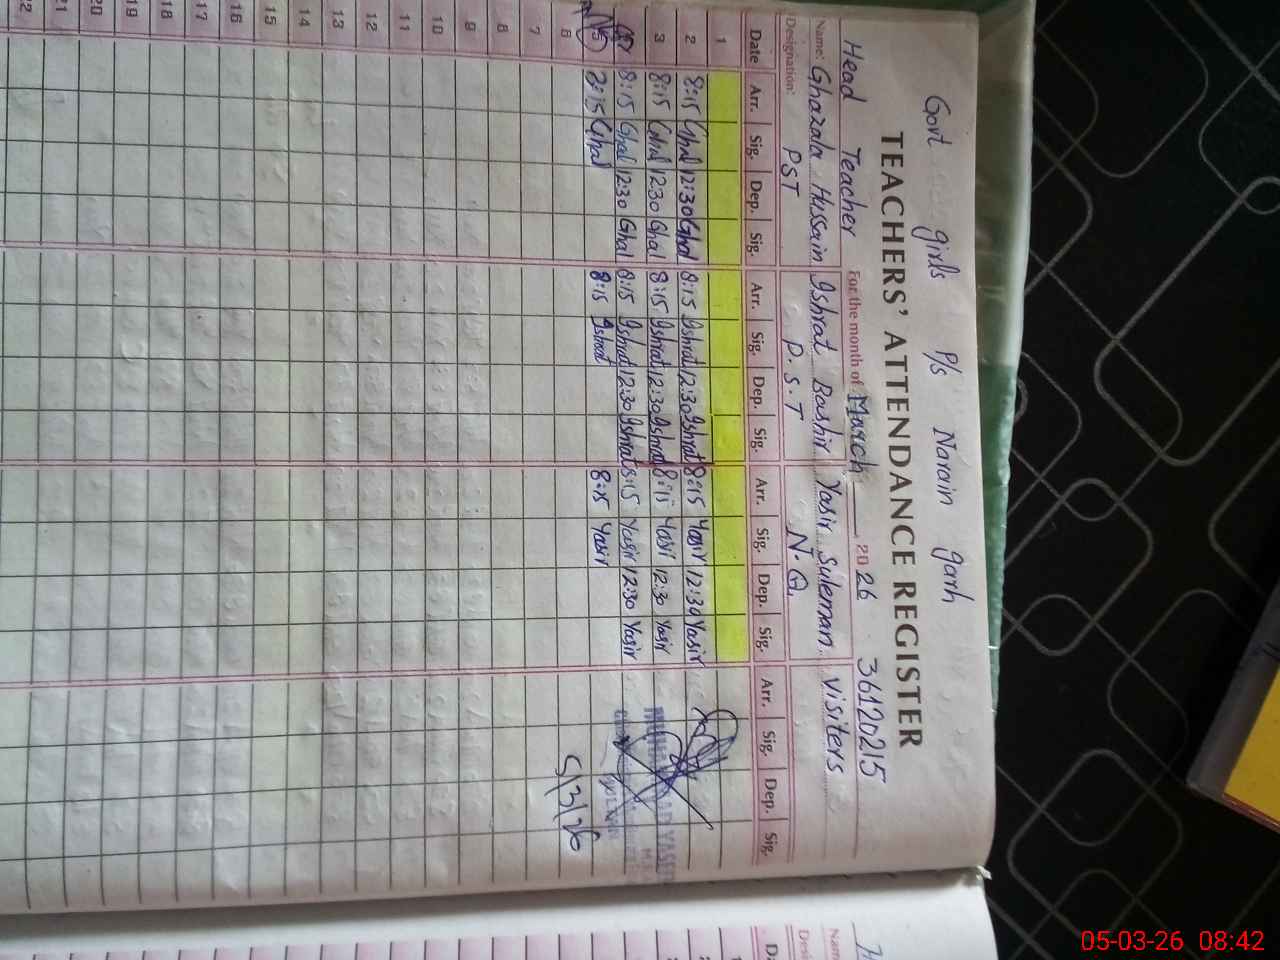 Govt girls P/s Narain garh
TEACHERS' ATTENDANCE REGISTER
Head Teacher For the month of March 2026 36120215
Name: Ghazala Hussain Ishrat Bashir Yasir Suleman visiters
Designation: PST P.S.T N.Q.
Date Arr. Sig. Dep. Sig. Arr. Sig. Dep. Sig. Arr. Sig. Dep. Sig. Arr. Sig. Dep. Sig.
1
2 8:15 Ghal 12:30 Ghal 8:15 Ishrat 12:30 Ishrat 8:15 Yasir 12:30 Yasir
3 8:15 Ghal 12:30 Ghal 8:15 Ishrat 12:30 Ishrat 8:15 Yasir 12:30 Yasir
8:15 Ghal 12:30 Ghal 8:15 Ishrat 12:30 Ishrat 8:15 Yasir 12:30 Yasir
8:15 Ghal 8:15 Ishrat 8:15 Yasir
6 5/3/26
7
8
9
10
11
12
13
14
15
16
17
18
19
20
21
22
05-03-26 08:42